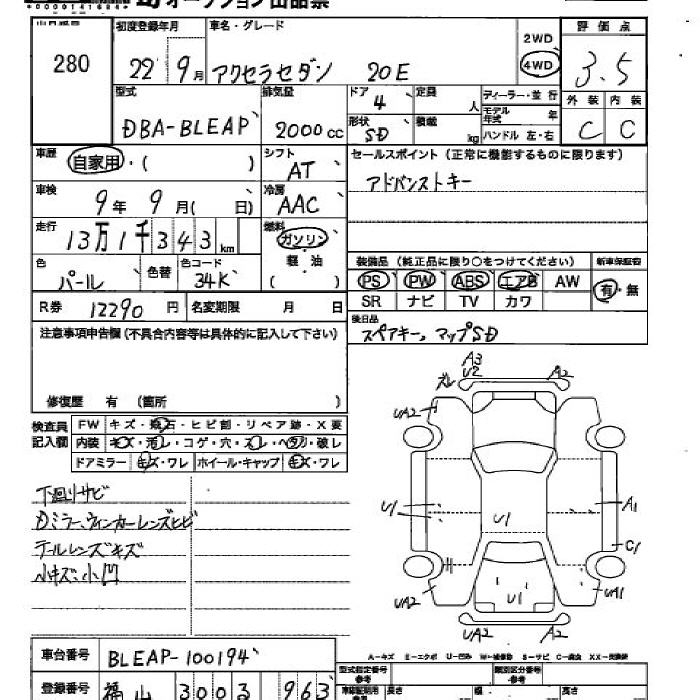 オークション出品票
280
初度登録年月 車名・グレード
22年 9月 アクセラセダン 20E
2WD
4WD
評価点
3.5
外装 内装
C C
型式 排気量 ドア 定員 ディーラー・並行
DBA-BLEAP 2000cc 4 人 モデル年式 年
形状 積載
SD kg ハンドル 左・右
車歴 シフト セールスポイント (正常に機能するものに限ります)
自家用・( ) AT アドバンストキー
車検 冷房
9年 9月( 日) AAC
走行 燃料
13万1千343km ガソリン
色 色替 色コード 軽油
パール 34K ( )
装備品 (純正品に限り〇をつけてください) 新車保証書
PS PW ABS エアB AW 有・無
SR ナビ TV カワ
R券 12290円 名変期限 月 日
後日品
スペアキー、マップSD
注意事項申告欄 (不具合内容等は具体的に記入して下さい)
修復歴 有 (箇所 )
検査員記入欄
FW キズ・飛石・ヒビ割・リペア跡・X要
内装 キズ・汚レ・コゲ・穴・スレ・ヘタリ・破レ
ドアミラー キズ・ワレ ホイール・キャップ キズ・ワレ
下廻りサビ
Dミラーウィンカーレンズヒビ
テールレンズキズ
小キズ・小凹
A3
U2
ズレ
A2
UA2
U1
U1
A1
C1
U1
UA2
UA1
UA2
A2
A-キズ E-エクボ U-凹み W-補修跡 S-サビ C-腐食 XX-交換済
車台番号 BLEAP-100194
型式指定番号 参考
類別区分番号 参考
登録番号 福山 300 963
長さ 幅 高さ